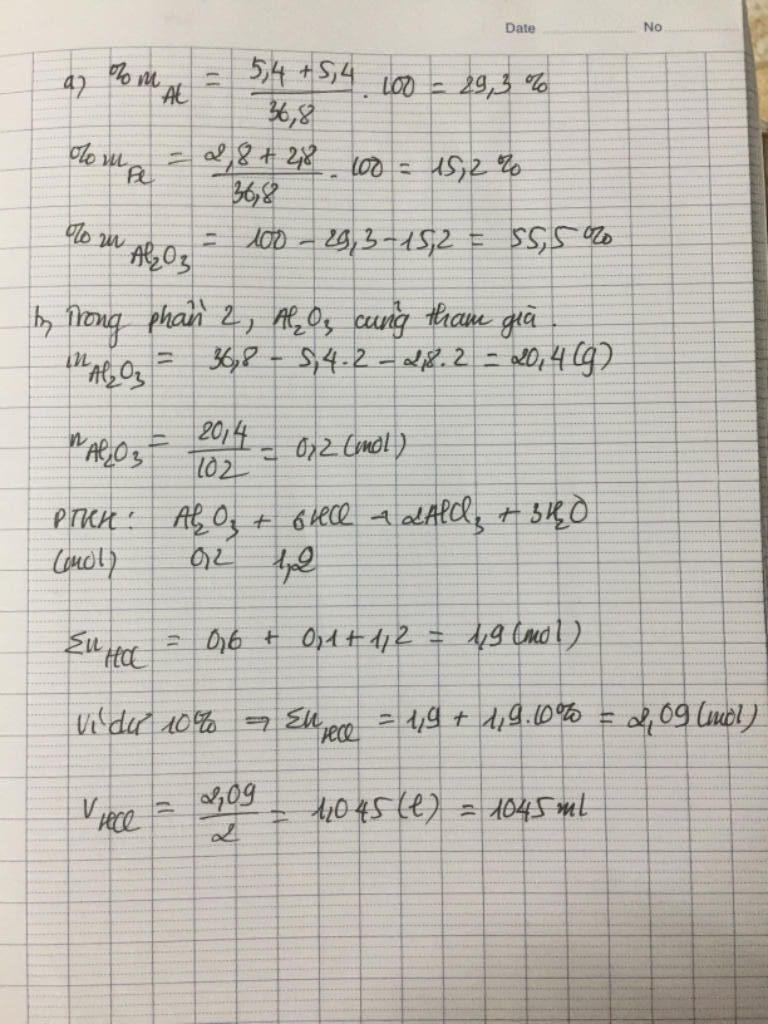 Date No
a) %m Al = 5,4 + 5,4 / 36,8 . 100 = 29,3 %
%m Fe = 2,8 + 2,8 / 36,8 . 100 = 15,2 %
%m Al2O3 = 100 - 29,3 - 15,2 = 55,5 %
b, Trong phần 2, Al2O3 cũng tham gia.
m Al2O3 = 36,8 - 5,4.2 - 2,8.2 = 20,4 (g)
n Al2O3 = 20,4 / 102 = 0,2 (mol)
PTHH: Al2O3 + 6HCl → 2AlCl3 + 3H2O
(mol) 0,2 1,2
Σn HCl = 0,6 + 0,1 + 1,2 = 1,9 (mol)
Vì dư 10% ⇒ Σn HCl = 1,9 + 1,9.10% = 2,09 (mol)
V HCl = 2,09 / 2 = 1,045 (l) = 1045 ml